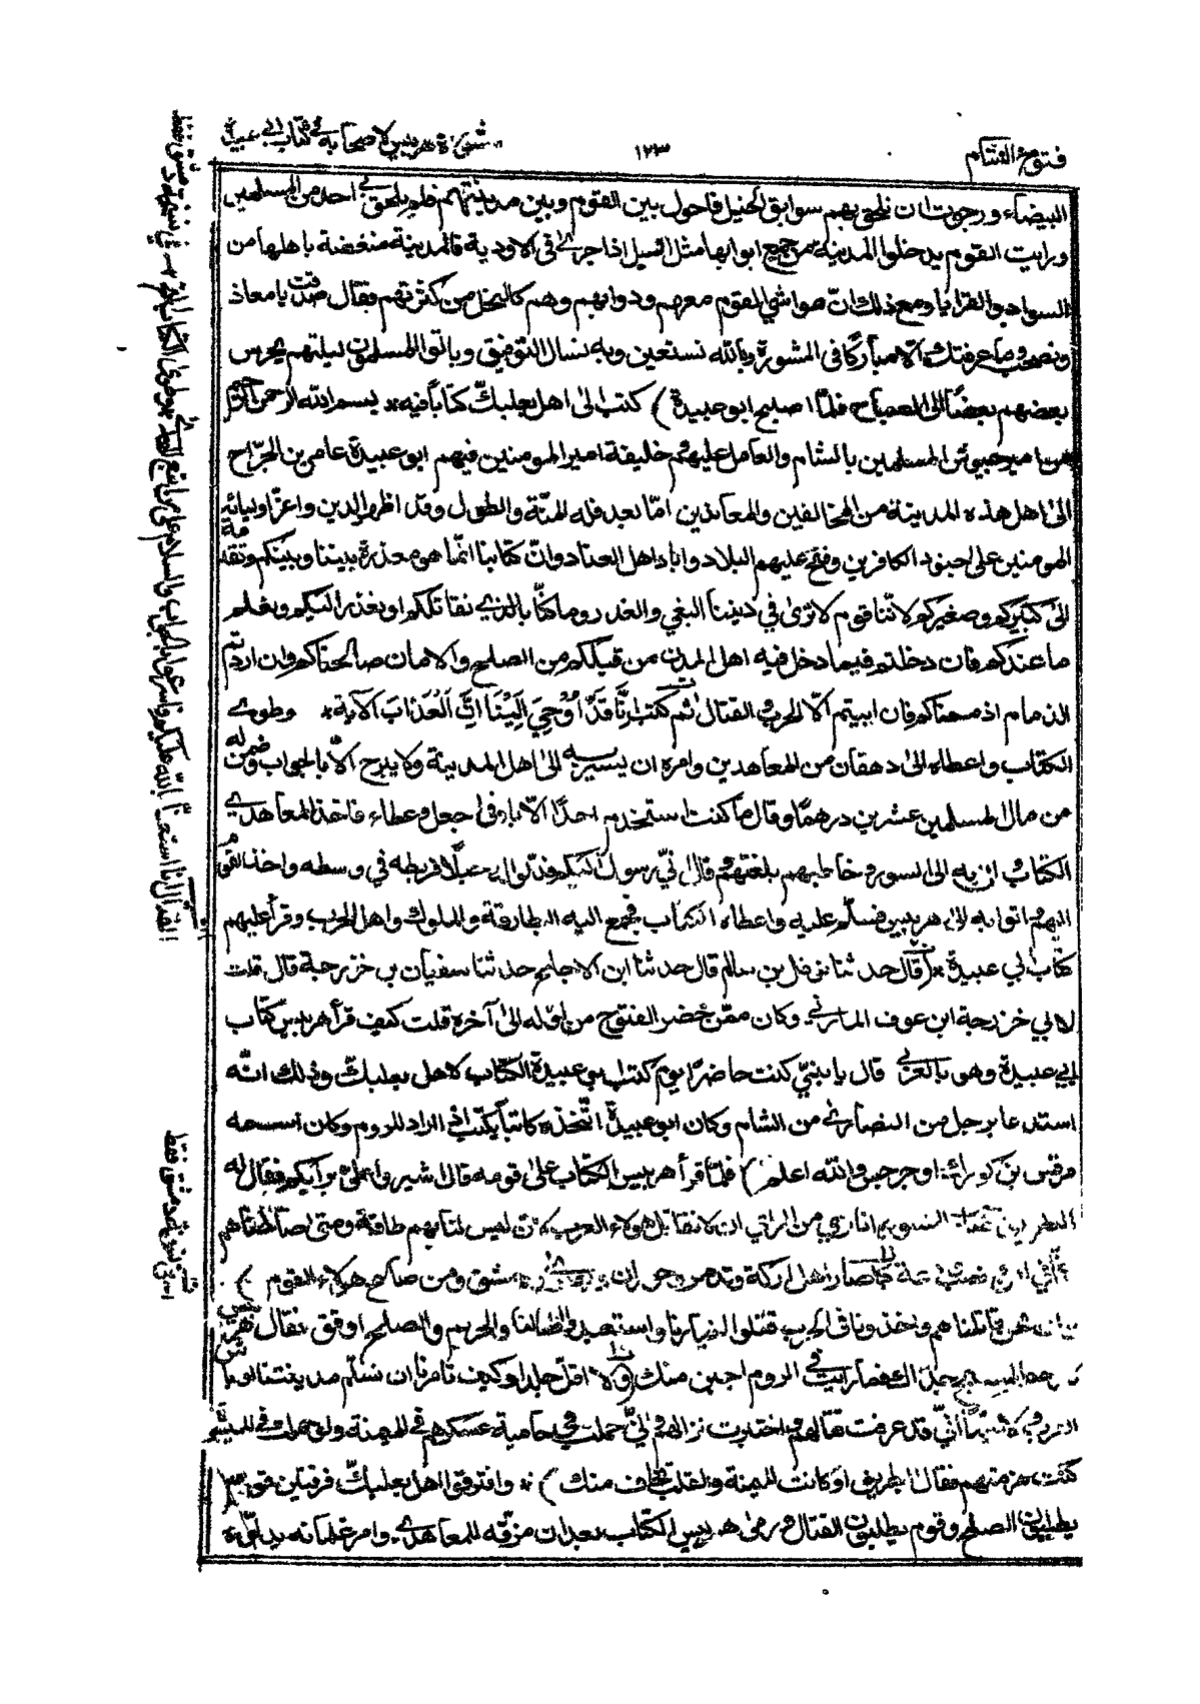 فتوح الشام
١٢٣
شورة هربيس لاصحابه في كتاب ابي عبيدة
البيضاء ورجوت ان نلحق بهم سوابق الخيل فاحول بين القوم وبين مدينتهم فلم يلحق احد من المسلمين
ورايت القوم يدخلوا المدينة من جميع ابوابها مثل السيل اذا جرى في الاودية فالمدينة منغضة باهلها من
السواد والقرايا ومع ذلك انّ مواشي القوم معهم ودوابهم وهم كالنحل من كثرتهم فقال صدقت يا معاذ
ونصحت وما عرفتك الا مباركا في المشورة وبالله نستعين وبه نسال التوفيق وباتوا المسلمون ليلتهم يحرس
بعضهم بعضًا الى الصباح فلمّا اصبح ابو عبيدة) كتب الى اهل بعلبكّ كتاباً فيه * بسم الله الرحمن الرحيم
من امير جيوش المسلمين بالشام والعامل عليهم خليفة امير المومنين فيهم ابو عبيدة عامر بن الجرّاح
الى اهل هذه المدينة من المخالفين والمعاندين امّا بعد فلله المنّة والطول وقد اظهر الدين واعزّ اوليائه
المومنين على جنود الكافرين وفتح عليهم البلاد واباد اهل العناد وانّ كتابنا انّما هو معذرة بيننا وبينكم وتقدمة
الى كبيركم وصغيركم لانّنا قوم لا نرى في ديننا البغي والغدر وما كنّا بالذي نقاتلكم او نعذر اليكم ونعلم
ما عندكم فان دخلتم فيما دخل فيه اهل المدن من قبلكم من الصلح والامان صالحناكم وان اردتم
الذمام اذممناكم فان ابيتم الّا الحرب القتال ثم كتب اِنَّا قَدْ اُوْحِيَ اِلَيْنَا اَنَّ الْعَذَابَ الآية * وطوى
الكتاب واعطاه الى دهقان من المعاهدين وامره ان يسير به الى اهل المدينة ولا يبرح الّا بالجواب وضمن له
من مال المسلمين عشرين درهمًا وقال ما كنت استخدم احدًا الّا باوفى جعل وعطاء فاخذ المعاهدي
الكتاب اتى به الى السور وخاطبهم بلغتهم وقال انّي رسول اليكم فدلوا لي حبلًا فربطه في وسطه واخذه القوم
اليهم اتوا به الى هربيس فسلّم عليه واعطاه الكتاب فجمع اليه البطارقة والملوك واهل الحرب وقرأ عليهم
كتاب ابي عبيدة * (قال حدثنا نوفل بن سالم قال حدثنا ابن الاجلح حدثنا سفيان بن خزرجة قال قلت
لابي خزرجة ابن عوف المازني وكان ممّن حضر الفتوح من اوله الى آخره قلت كيف قرأ هربيس كتاب
ابي عبيدة وهو بالعربي قال يا بنيّ كنت حاضرًا يوم كتب ابو عبيدة الكتاب لاهل بعلبكّ وذلك انّه
استدعا برجل من النصارى من الشام وكان ابو عبيدة اتّخذه كاتباً يكتب اذا اراد للروم وكان اسمه
مرقس بن كورك او جرجس والله اعلم) فلمّا قرأ هربيس الكتاب على قومه قال اشيروا عليّ برأيكم فقال له
من الراي ان لا نقاتل هولاء العرب لانّ ليس لنا بهم طاقة ومتى صالحناهم
صار اهل اركة وتدمر وحوران وبصرى ودمشق ومن صالح هولاء القوم)
وان نحن قاتلناهم واخذونا في الحرب قتلوا خيارنا واستعبدوا اطفالنا والحريم والصلح اوفق فقال هربيس
لا رحمك المسيح فما رايت في الروم اجبن منك ولا اقلّ جلدا وكيف تامرنا ان نسلّم مدينتنا
انّي قد عرفت قتالهم واختبرت نزالهم وانّي حملت في حامية عسكرهم في الميمنة ولو حملت في الميسرة
كنت هزمتهم فقال البطريق او كانت الميمنة والقلب تخاف منك) * وافترقوا اهل بعلبكّ فرقتين قوم
يطلبون الصلح وقوم يطلبون القتال ورمى هربيس الكتاب بعد ان مزّقه للمعاهدي وامر غلمانه